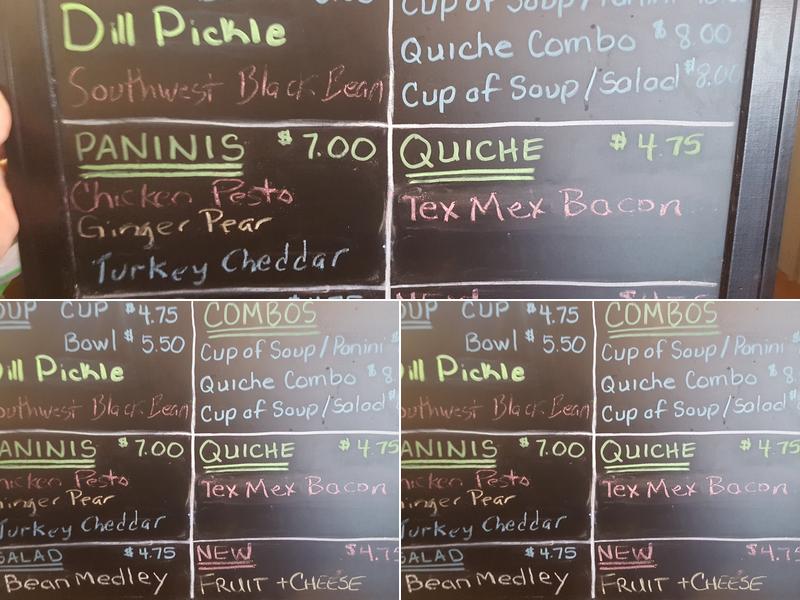 Dill Pickle
Southwest Black Bean
Cup of Soup/Panini
Quiche Combo $8.00
Cup of Soup/Salad $8.00
PANINIS $7.00
Chicken Pesto
Ginger Pear
Turkey Cheddar
QUICHE $4.75
Tex Mex Bacon
NEW $4.75
OUP CUP $4.75
Bowl $5.50
ill Pickle
outhwest Black Bean
COMBOS
Cup of Soup/Panini $
Quiche Combo $8
Cup of Soup/Salad $
ANINIS $7.00
hicken Pesto
inger Pear
Turkey Cheddar
QUICHE $4.75
Tex Mex Bacon
SALAD $4.75
Bean Medley
NEW $4.75
FRUIT + CHEESE
OUP CUP $4.75
Bowl $5.50
ill Pickle
outhwest Black Bean
COMBOS
Cup of Soup/Panini $
Quiche Combo $8
Cup of Soup/Salad $
ANINIS $7.00
hicken Pesto
inger Pear
Turkey Cheddar
QUICHE $4.75
Tex Mex Bacon
SALAD $4.75
Bean Medley
NEW $4.75
FRUIT + CHEESE